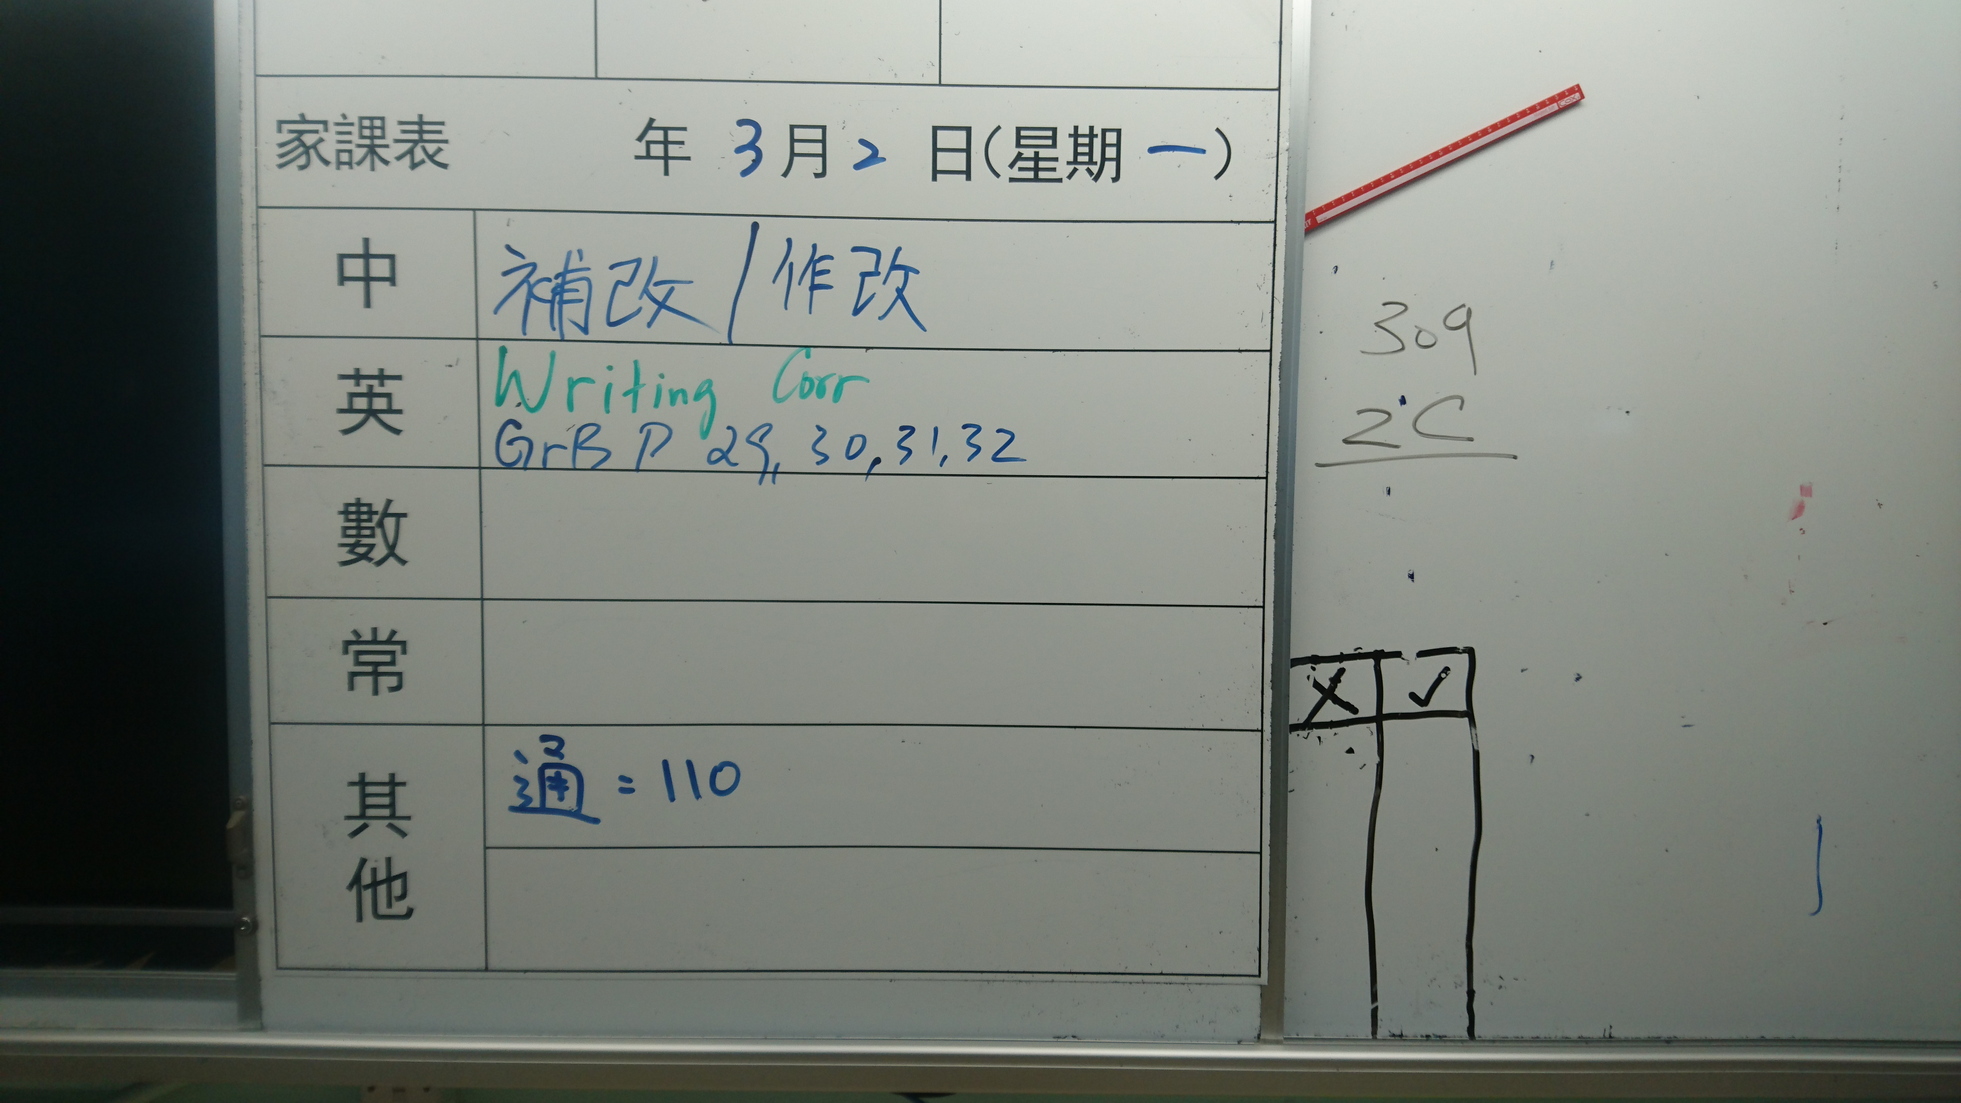 家課表 年 3 月 2 日(星期 一)
中 補改/作改
英 Writing Corr
GrB P 29, 30, 31, 32
數
常
其他 通=110
309
2C
X ✓